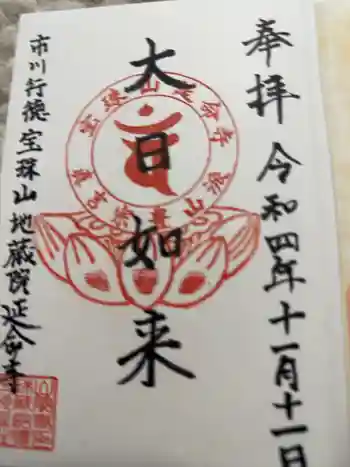 奉拝
令和四年十一月十一日
大日如来
市川行徳宝珠山地蔵院延命寺